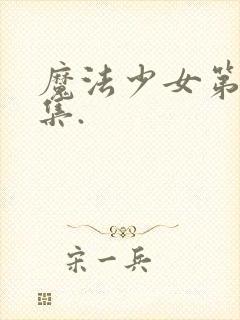 魔法少女第
集.
宋一兵